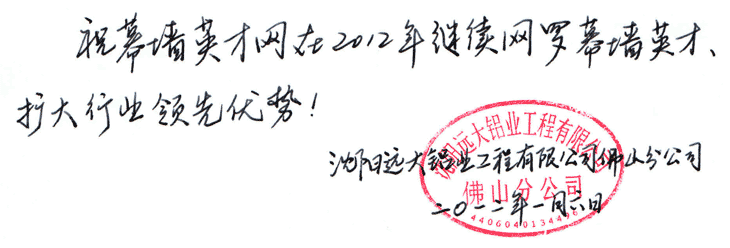 祝幕墙英才网在2012年继续网罗幕墙英才、
扩大行业领先优势！
沈阳远大铝业工程有限公司佛山分公司
二〇一二年一月六日
沈阳远大铝业工程有限公司
佛山分公司